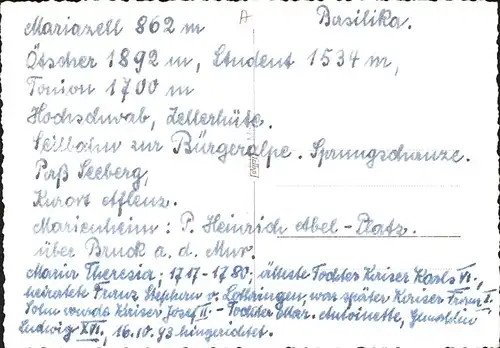 Mariazell 862 m A Basilika.
Ötscher 1892 m, Student 1534 m,
Tonion 1700 m
Hochschwab, Zellerhüte.
Seilbahn zur Bürgeralpe. Sprungschanze.
Paß Seeberg,
Kurort Aflenz.
Marienheim: P. Heinrich Abel-Platz.
über Bruck a. d. Mur.
Maria Theresia; 1717-1780. älteste Tochter Kaiser Karls VI.,
heiratete Franz Stephan v. Lothringen, war später Kaiser Franz I.
Sohn wurde Kaiser Josef II. - Tochter Mar. Antoinette, Gemahlin
Ludwig XVI, 16.10.93 hingerichtet.